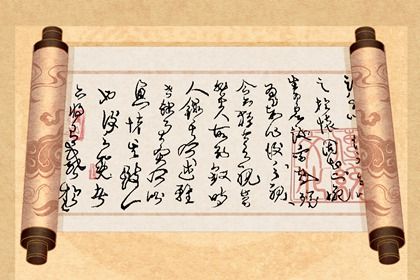 之於懷固知一死
生為虛誕齊彭殤
為妄作後之視
今亦猶今之視昔
悲夫故列敘時
人錄其所述雖
世殊事異所以
興懷其致一
也後之覽者
亦將有感於斯